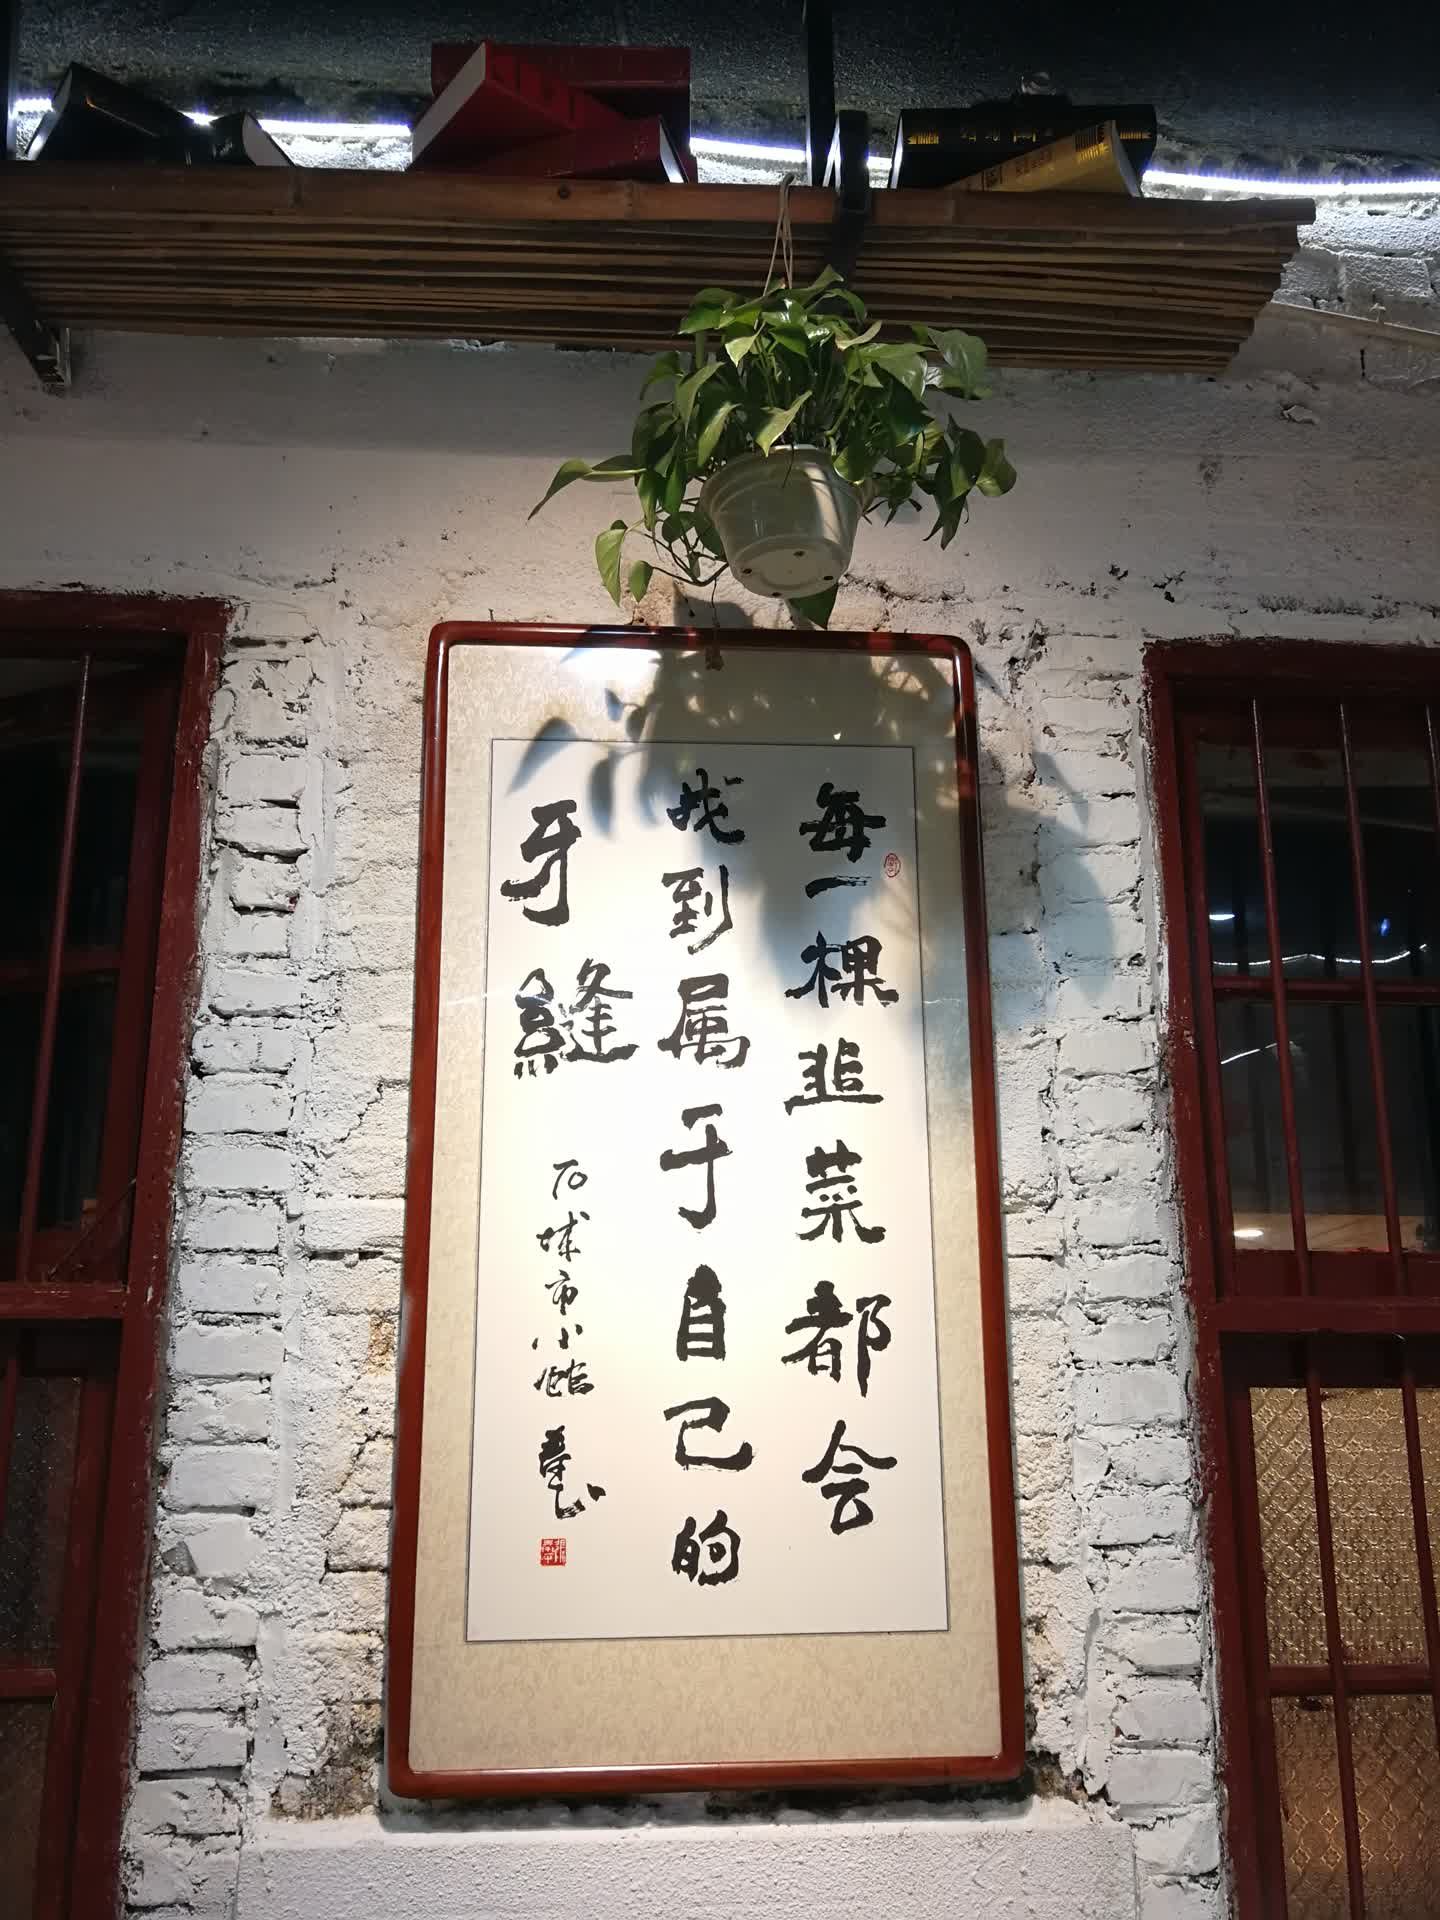 每一棵韭菜都会
找到属于自己的
牙縫
石城市小館